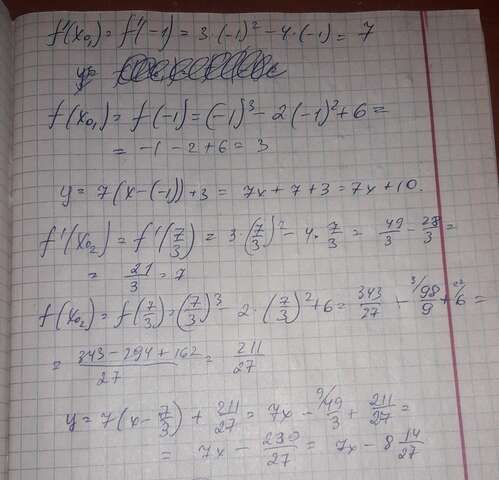 f'(x₀₁) = f'(-1) = 3·(-1)² - 4·(-1) = 7
ур
f(x₀₁) = f(-1) = (-1)³ - 2(-1)² + 6 =
= -1 - 2 + 6 = 3
y = 7(x-(-1)) + 3 = 7x + 7 + 3 = 7x + 10.
f'(x₀₂) = f'(7/3) = 3·(7/3)² - 4·7/3 = 49/3 - 28/3 =
= 21/3 = 7
f(x₀₂) = f(7/3) = (7/3)³ - 2·(7/3)² + 6 = 343/27 - ³⁾98/9 + ²⁷⁾6 =
= (343 - 294 + 162)/27 = 211/27
y = 7(x - 7/3) + 211/27 = 7x - ⁹⁾49/3 + 211/27 =
= 7x - 230/27 = 7x - 8 14/27